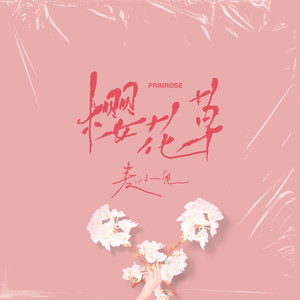 PRIMROSE
樱花草
麦小兜